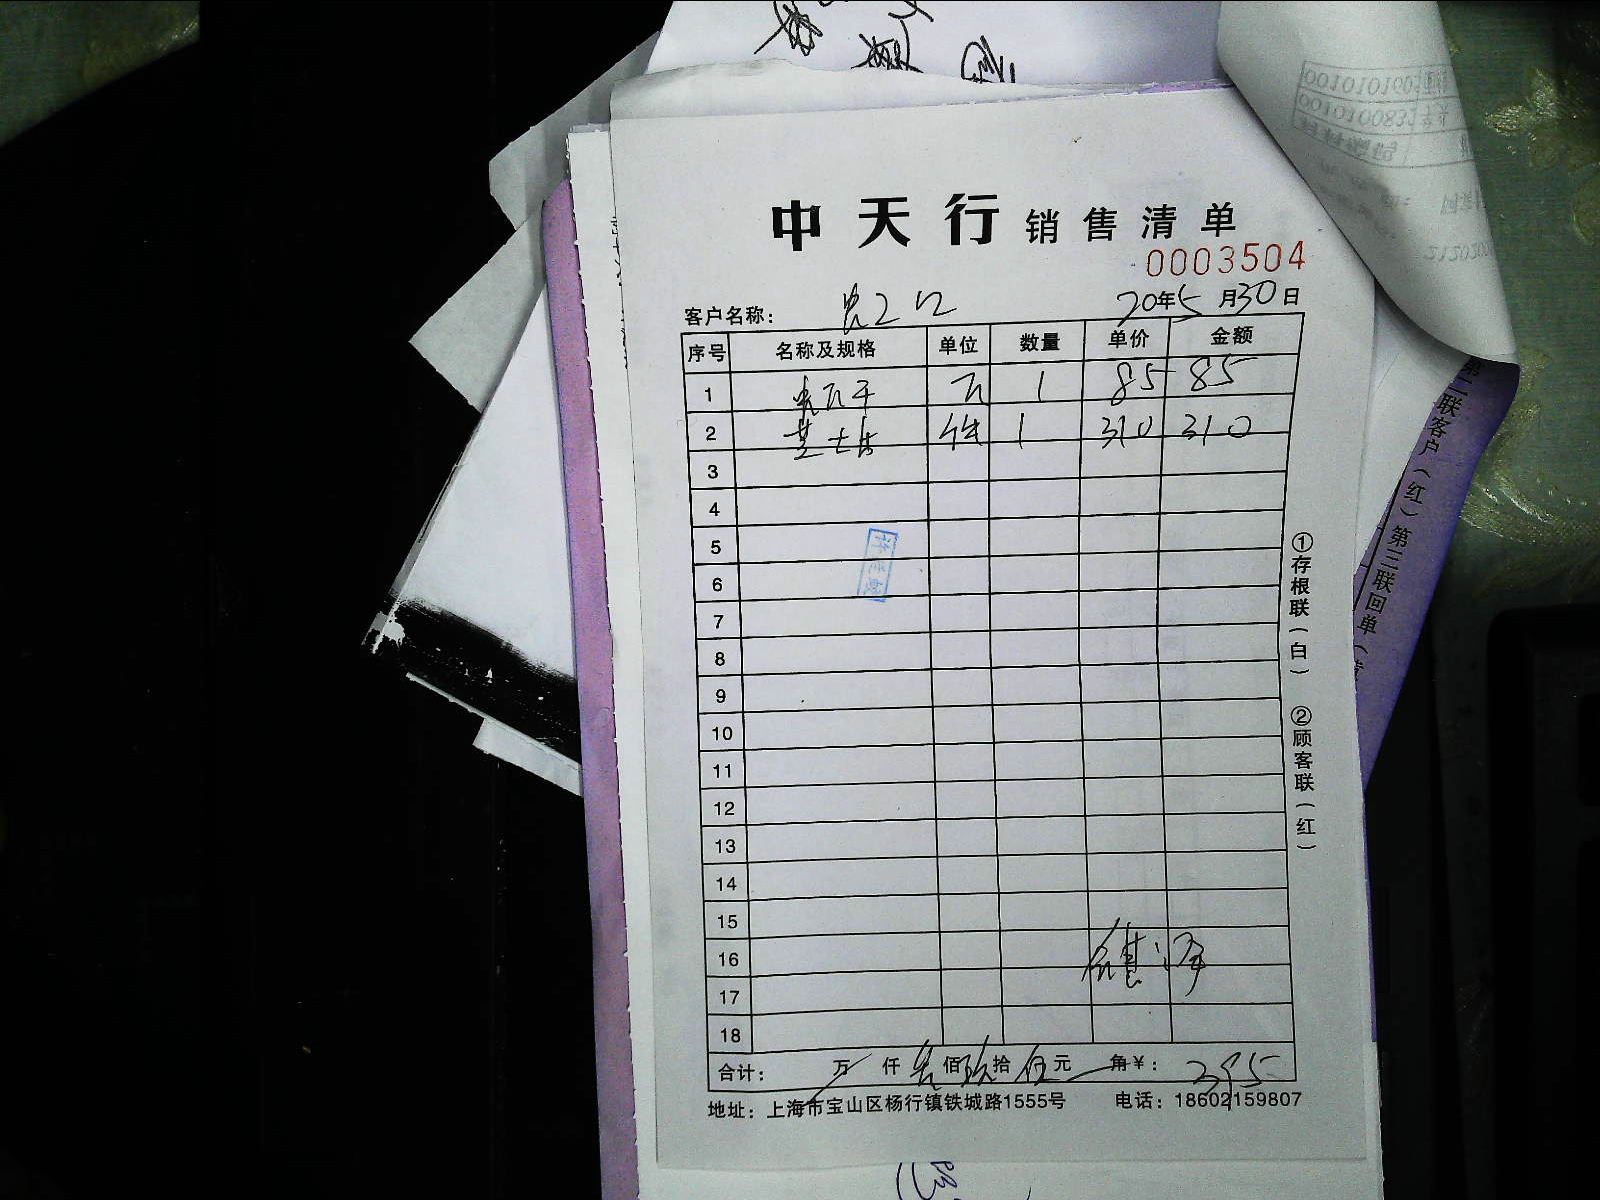 中天行 销售清单
0003504
客户名称：
20年5月30日
序号 名称及规格 单位 数量 单价 金额
1 1 85 85
2 芝士 件 1 310 310
3
4
5
6
7
8
9
10
11
12
13
14
15
16
17
18
合计： 万 仟 叁佰玖拾伍元 角￥：395
地址：上海市宝山区杨行镇铁城路1555号 电话：18602159807
①存根联（白） ②顾客联（红）
第二联客户（红）第三联回单（